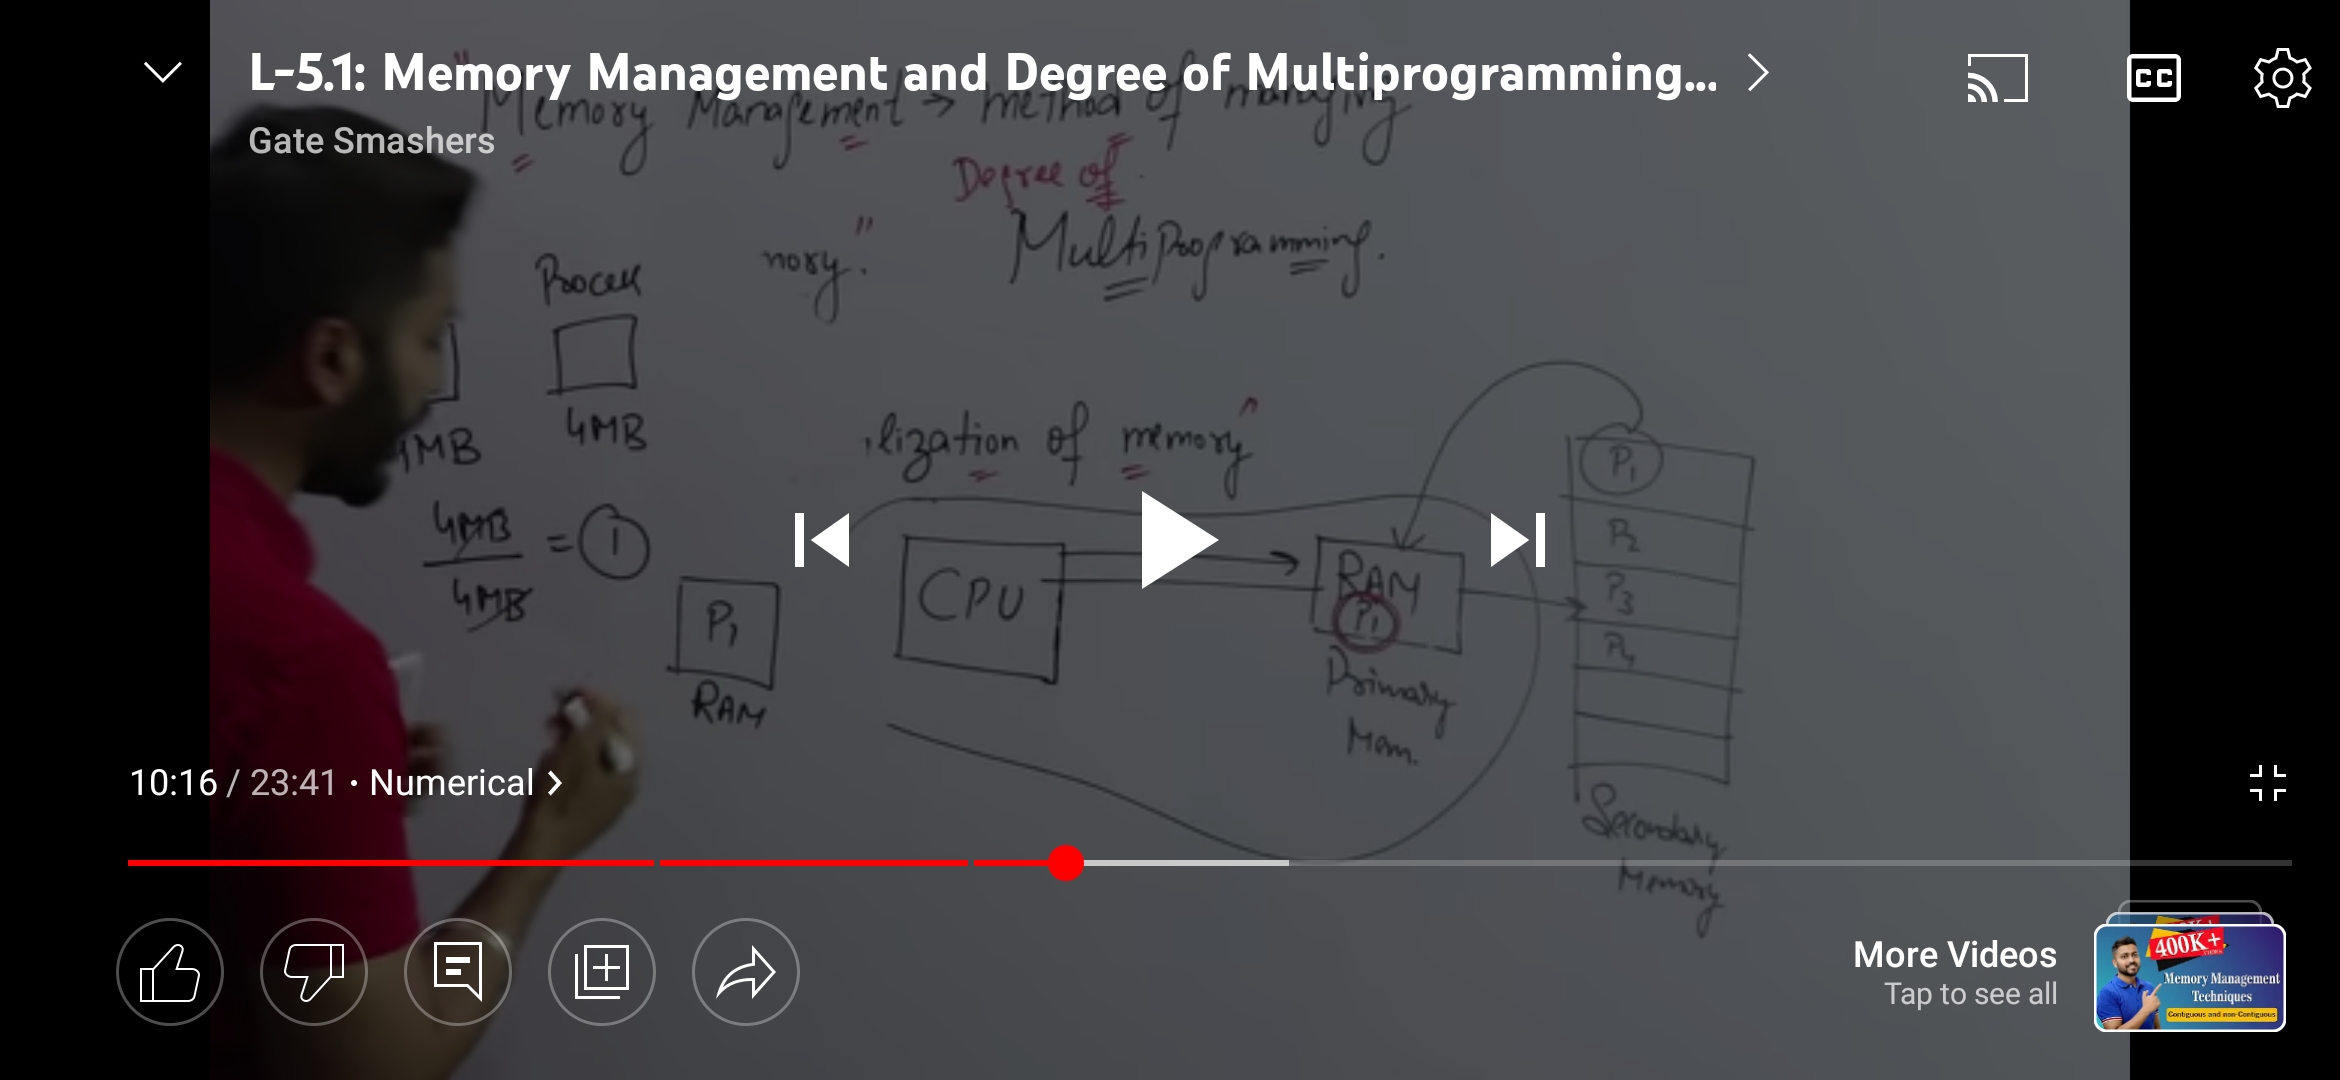 L-5.1: Memory Management and Degree of Multiprogramming...
Gate Smashers
CC
"Memory Management → method of managing
Degree of
nory."
MultiProgramming.
Process
4MB
4MB
lization of memory"
4MB
4MB
= 1
P1
RAM
CPU
RAM
P1
Primary
Mem.
P1
P2
P3
P4
Secondary
Memory
10:16 / 23:41 • Numerical >
More Videos
Tap to see all
400K+
Memory Management
Techniques
Contiguous and non-Contiguous